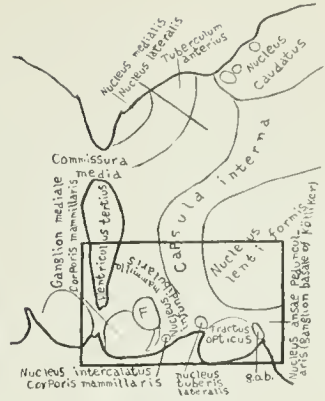 Nucleus medialis
Nucleus lateralis
Tuberculum
anterius
Nucleus
Caudatus
Commissura
media
Capsula interna
Nucleus
lentiformis
Ganglion mediale
Corporis mammillaris
Ventriculus tertius
Nucleus
mammillo
infundibularis
F
Tractus
opticus
Nucleus ansae peduncul
aris (Ganglion basale of Kölliker)
Nucleus intercalatus
Corporis mammillaris
nucleus
tuberis
lateralis
g.ab.